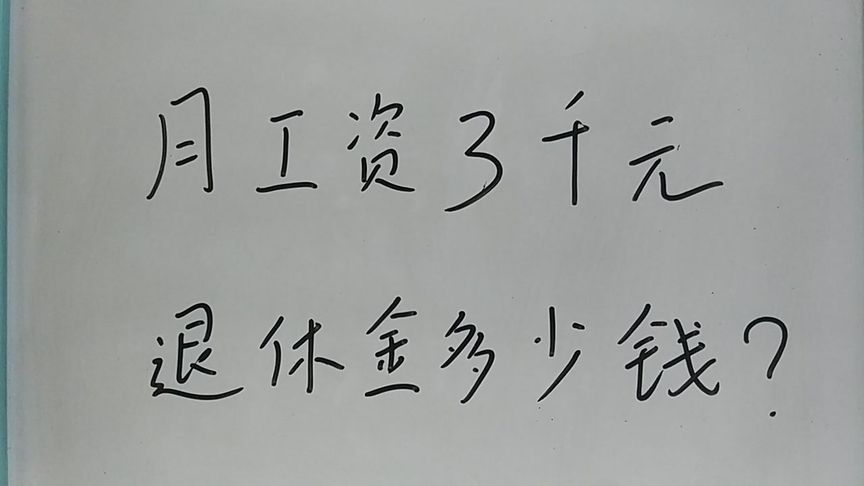 月工资3千元
退休金多少钱?